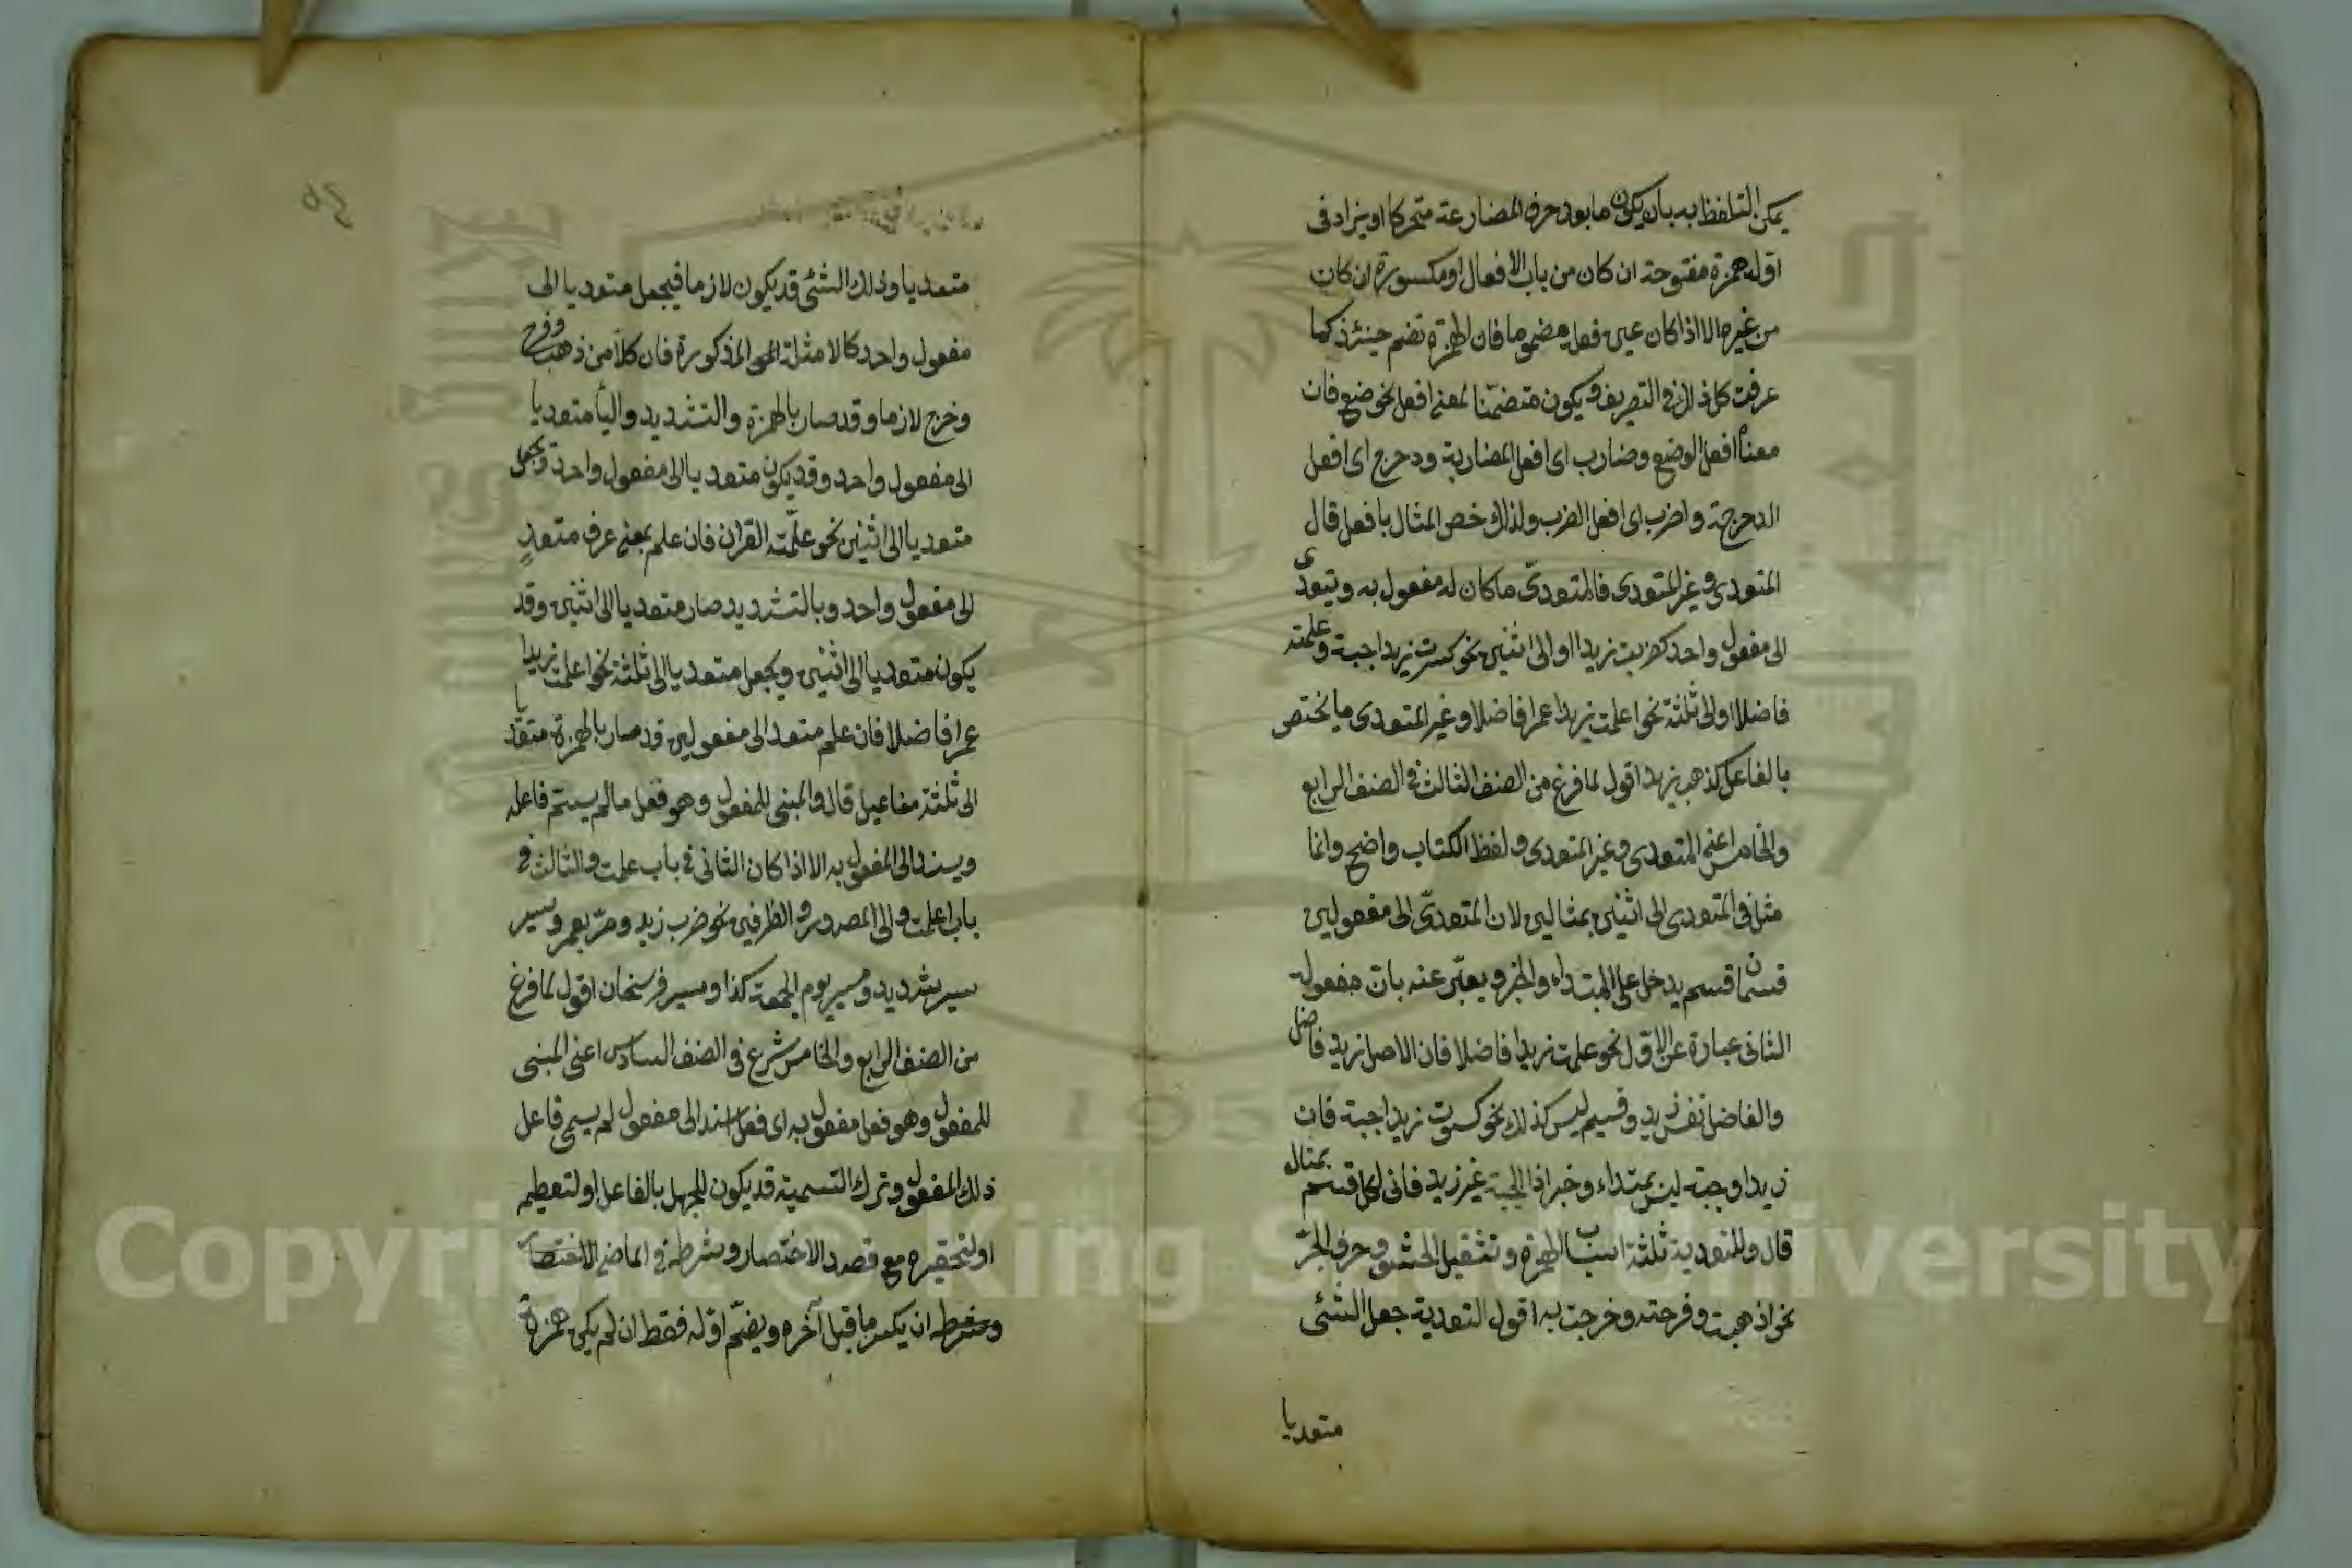 يمكن التلفظ به بان يكون ما بعد حرف المضارعة متحركا او يزاد في
اوله همزة مفتوحة ان كان من باب الافعال او مكسورة ان كان
من غيره الا اذا كان عين فعله مضموما فان الهمزة تضم حينئذ كما
عرفت كل ذلك في التصريف ويكون متضمّنا لمعنى افعل نحو ضع فان
معناه افعل الوضع وضارب اى افعل المضاربة ودحرج اى افعل
الدحرجة واضرب اى افعل الضرب ولذلك خص المثال بافعل قال
المتعدى وغير المتعدى فالمتعدىّ ماكان له مفعول به ويتعدى
الى مفعول واحد كضربت زيدا او الى اثنين نحو كسوت زيدا جبة وعلمته
فاضلا او الى ثلثة نحو اعلمت زيدا عمرا فاضلا وغير المتعدى ما يختص
بالفاعل كذهب زيد اقول لما فرغ من الصنف الثالث في الصنف الرابع
والخامس اعنى المتعدى وغير المتعدى ولفظ الكتاب واضح وانما
مثل في المتعدى الى اثنين بمثالين لان المتعدىّ الى مفعولين
قسمان قسم يدخل على المبتداء والخبر ويعبّر عنه بان مفعوله
الثانى عبارة عن الاول نحو علمت زيدا فاضلا فان الاصل زيد فاضل
والفاضل نفس زيد وقسم ليس كذلك نحو كسوت زيدا جبة فان
زيدا وجبة ليس بمبتداء وخبر اذ الجبة غير زيد فاتى لكل قسم بمثال
قال وللتعدية ثلثة اسباب الهمزة وتثقيل الحشو وحرف الجرّ
نحو اذهبت وفرحته وخرجت به اقول التعدية جعل الشئى
متعديا
متعديا وذلك الشئى قد يكون لازما فيجعل متعديا الى
مفعول واحد كالامثلة المذكورة فان كلا من ذهب وفرح
وخرج لازما وقد صار بالهمزة والتشديد والبأ متعديا
الى مفعول واحد وقد يكون متعديا الى مفعول واحد ويجعل
متعديا الى اثنين نحو علّمته القران فان علم بمعنى عرف متعدٍ
الى مفعول واحد وبالتشديد صار متعديا الى اثنين وقد
يكون متعديا الى اثنين ويجعل متعديا الى ثلثة نحو اعلمت زيدا
عمرا فاضلا فان علم متعد الى مفعولين قد صار بالهمزة متعديا
الى ثلثة مفاعيل قال والمبنى للمفعول وهو فعل مالم يسمّ فاعله
ويسند الى المفعول به الا اذا كان الثانى في باب علمت والثالث في
باب اعلمت والى المصدر والظرفين نحو ضرب زيد ومرّ بعمرو وسير
سير شديد وسير يوم الجمعة كذا وسير فرسخان اقول لما فرغ
من الصنف الرابع والخامس شرع في الصنف السادس اعنى المبنى
للمفعول وهو فعل مفعول به اى فعل اسند الى مفعول لم يسمى فاعل
ذلك المفعول وترك التسمية قد يكون للجهل بالفاعل او لتعظيمه
او لتحقيره مع قصد الاختصار وشرطه في الماضى
وشرطه ان يكسر ما قبل آخره ويضمّ اوله فقط ان لم يكن همزة
Copyright © King Saud University